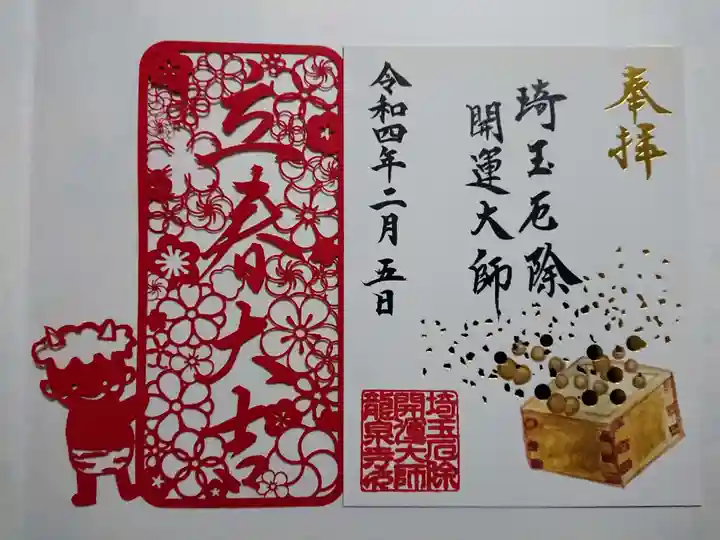 奉拝
琦玉厄除
開運大師
令和四年二月五日
立春大吉
埼玉厄除
開運大師
龍泉寺